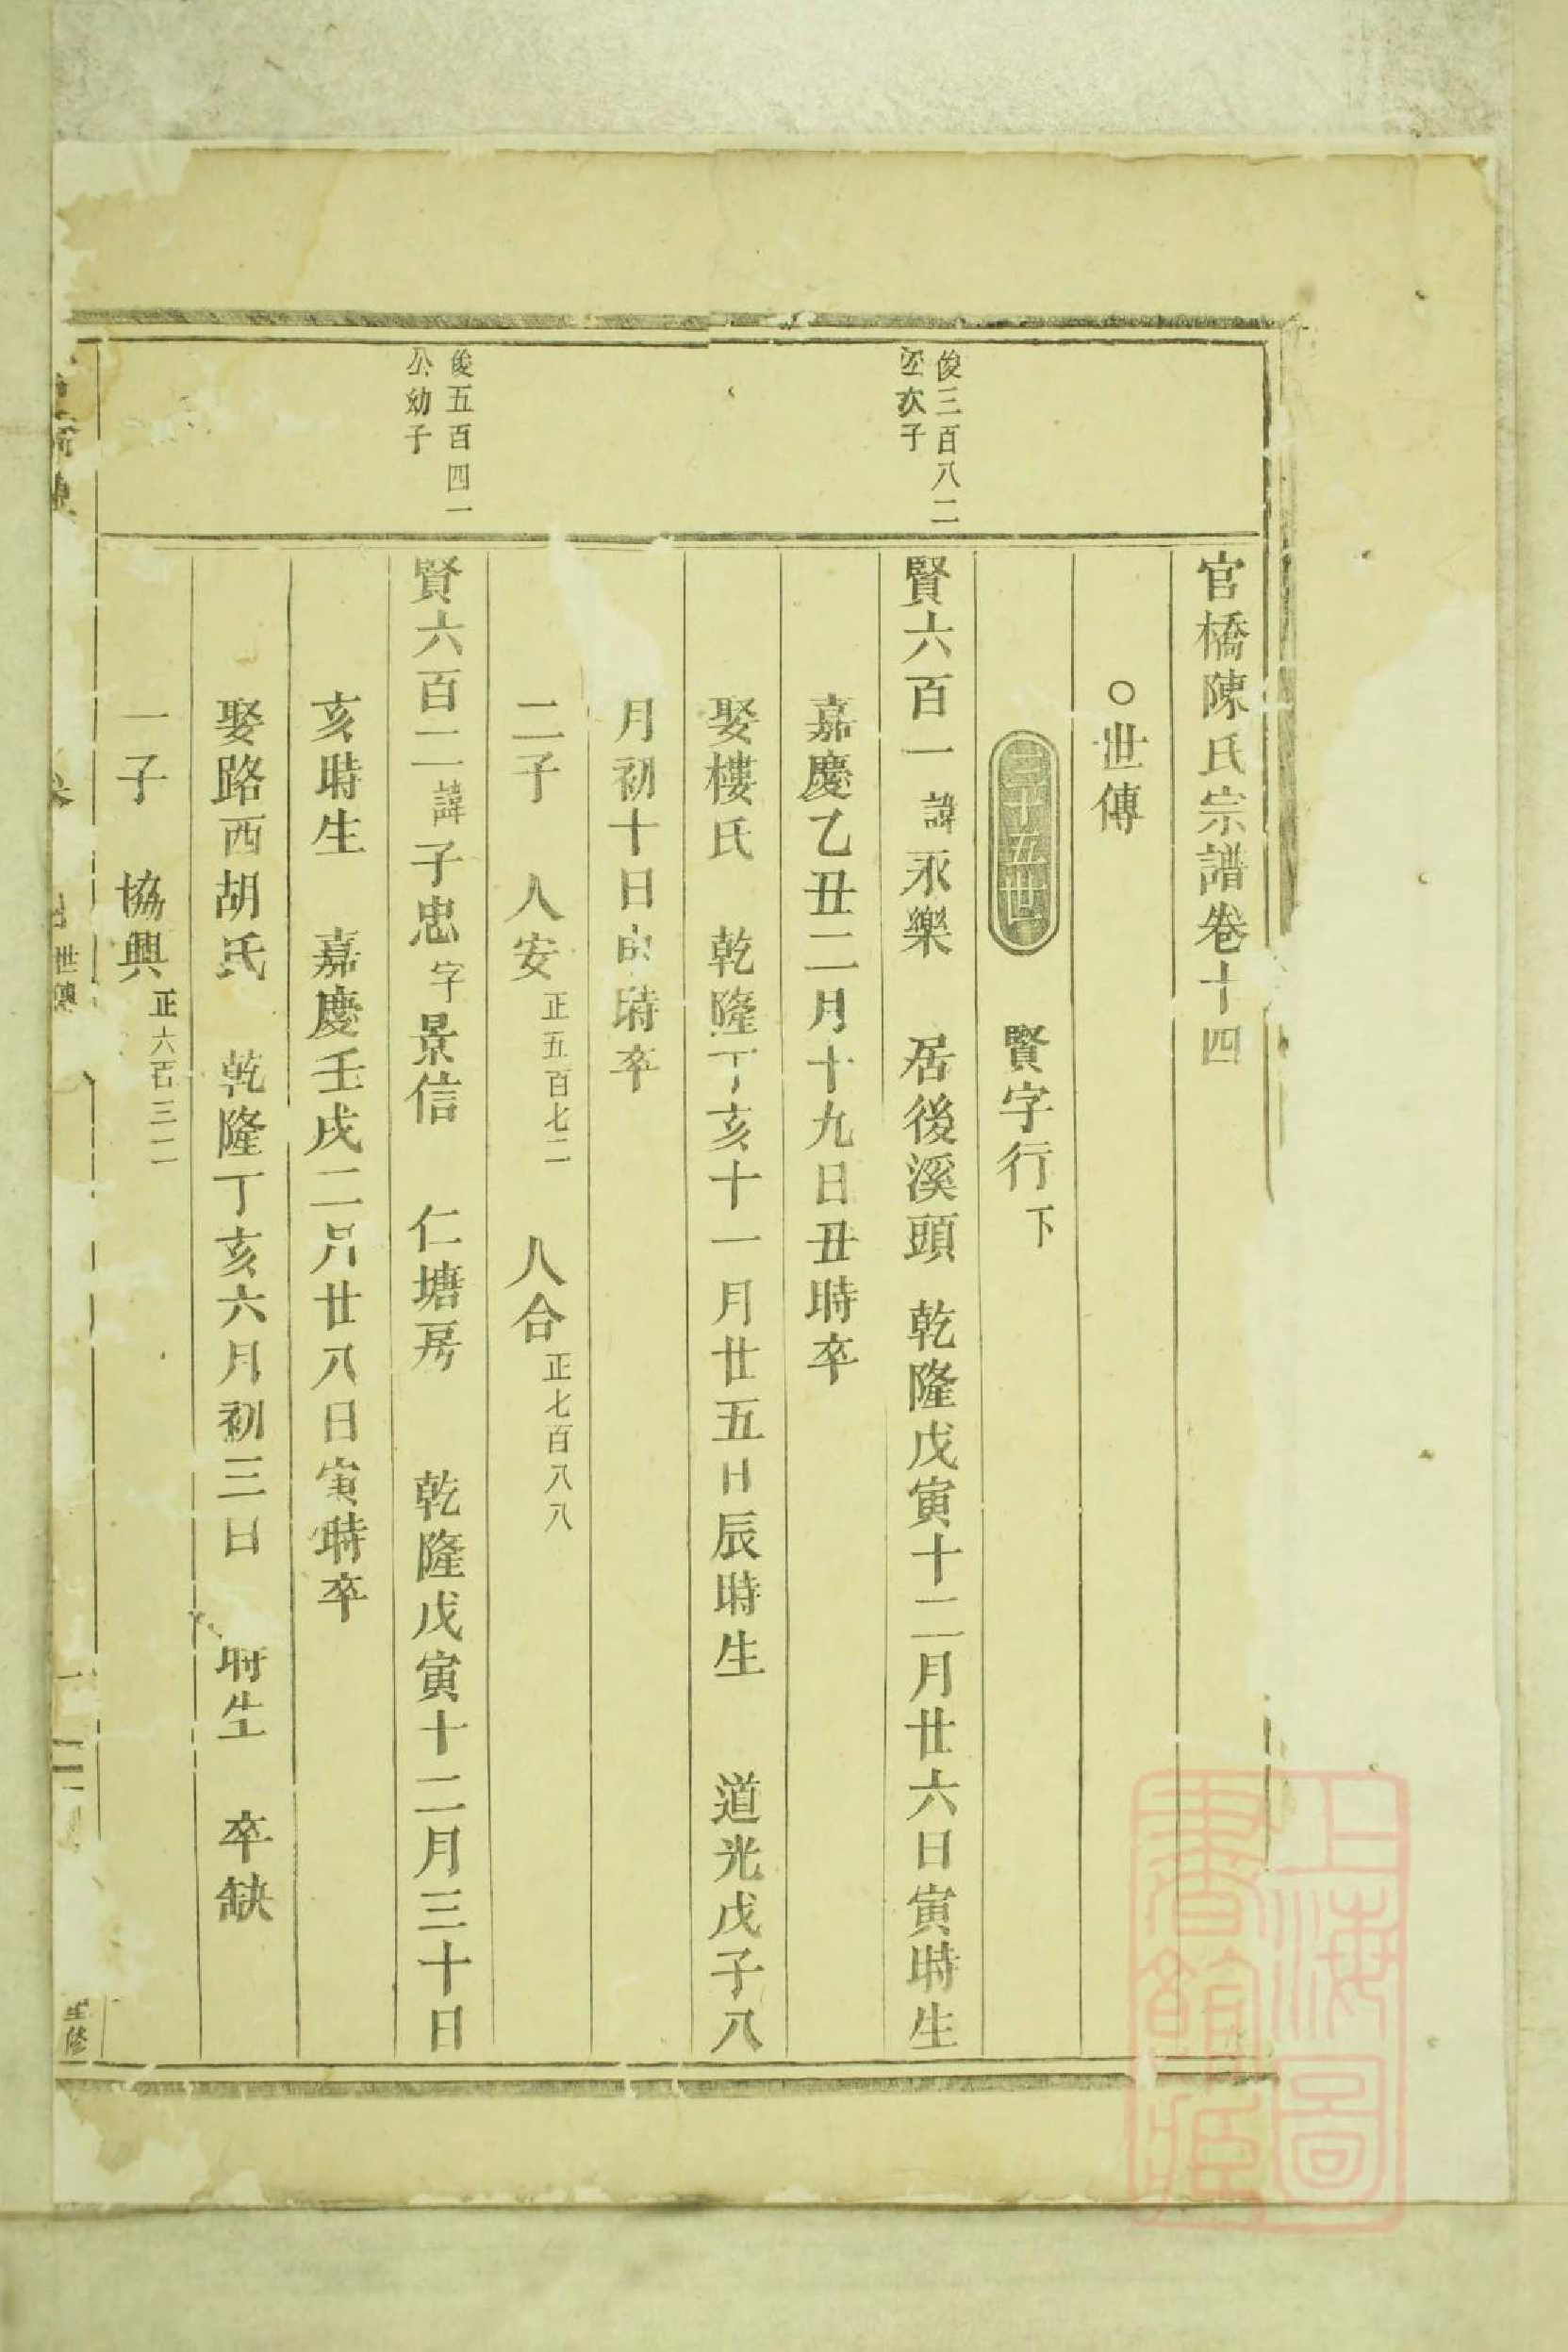 官橋陳氏宗譜卷十四
○世傳
二十五世 賢字行下
俊三百八二
公次子
賢六百一諱永樂 居後溪頭 乾隆戊寅十二月廿六日寅時生
嘉慶乙丑二月十九日丑時卒
娶樓氏 乾隆丁亥十一月廿五日辰時生 道光戊子八
月初十日 時卒
二子 人安正五百七二 人合正七百八八
俊五百四一
公幼子
賢六百二諱子忠字景信 仁塘房 乾隆戊寅十二月三十日
亥時生 嘉慶壬戌二月廿八日寅時卒
娶路西胡氏 乾隆丁亥六月初三日 時生 卒缺
一子 協興正六百三二
世傳
上海圖
書館藏